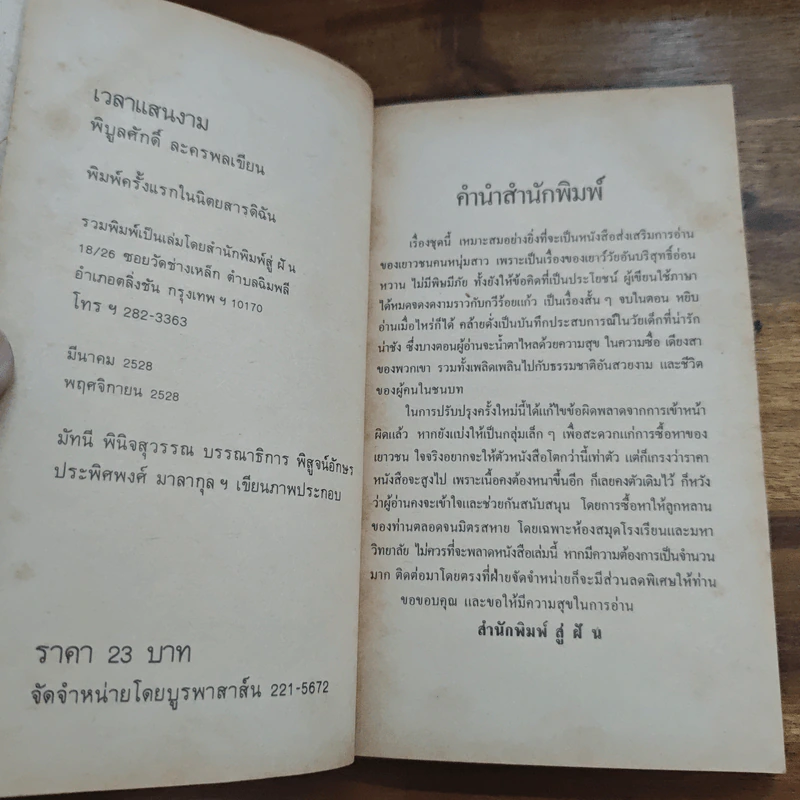 เวลาแสนงาม
พิบูลศักดิ์ ละครพลเขียน
พิมพ์ครั้งแรกในนิตยสารดิฉัน
รวมพิมพ์เป็นเล่มโดยสำนักพิมพ์สู่ ฝัน
18/26 ซอยวัดช่างเหล็ก ตำบลฉิมพลี
อำเภอตลิ่งชัน กรุงเทพ ฯ 10170
โทร ฯ 282-3363
มีนาคม 2528
พฤศจิกายน 2528
มัทนี พินิจสุวรรณ บรรณาธิการ พิสูจน์อักษร
ประพิศพงศ์ มาลากุล ฯ เขียนภาพประกอบ
ราคา 23 บาท
จัดจำหน่ายโดยบูรพาสาส์น 221-5672
คำนำสำนักพิมพ์
เรื่องชุดนี้ เหมาะสมอย่างยิ่งที่จะเป็นหนังสือส่งเสริมการอ่าน
ของเยาวชนคนหนุ่มสาว เพราะเป็นเรื่องของเยาว์วัยอันบริสุทธิ์อ่อน
หวาน ไม่มีพิษมีภัย ทั้งยังให้ข้อคิดที่เป็นประโยชน์ ผู้เขียนใช้ภาษา
ได้หมดจดงดงามราวกับกวีร้อยแก้ว เป็นเรื่องสั้น ๆ จบในตอน หยิบ
อ่านเมื่อไหร่ก็ได้ คล้ายดั่งเป็นบันทึกประสบการณ์ในวัยเด็กที่น่ารัก
น่าชัง ซึ่งบางตอนผู้อ่านจะน้ำตาไหลด้วยความสุข ในความซื่อ เดียงสา
ของพวกเขา รวมทั้งเพลิดเพลินไปกับธรรมชาติอันสวยงาม และชีวิต
ของผู้คนในชนบท
ในการปรับปรุงครั้งใหม่นี้ได้แก้ไขข้อผิดพลาดจากการเข้าหน้า
ผิดแล้ว หากยังแบ่งให้เป็นกลุ่มเล็ก ๆ เพื่อสะดวกแก่การซื้อหาของ
เยาวชน ใจจริงอยากจะให้ตัวหนังสือโตกว่านี้เท่าตัว แต่ก็เกรงว่าราคา
หนังสือจะสูงไป เพราะเนื้อคงต้องหนาขึ้นอีก ก็เลยคงตัวเดิมไว้ ก็หวัง
ว่าผู้อ่านคงจะเข้าใจและช่วยกันสนับสนุน โดยการซื้อหาให้ลูกหลาน
ของท่านตลอดจนมิตรสหาย โดยเฉพาะห้องสมุดโรงเรียนและมหา
วิทยาลัย ไม่ควรที่จะพลาดหนังสือเล่มนี้ หากมีความต้องการเป็นจำนวน
มาก ติดต่อมาโดยตรงที่ฝ่ายจัดจำหน่ายก็จะมีส่วนลดพิเศษให้ท่าน
ขอขอบคุณ และขอให้มีความสุขในการอ่าน
สำนักพิมพ์ สู่ ฝัน